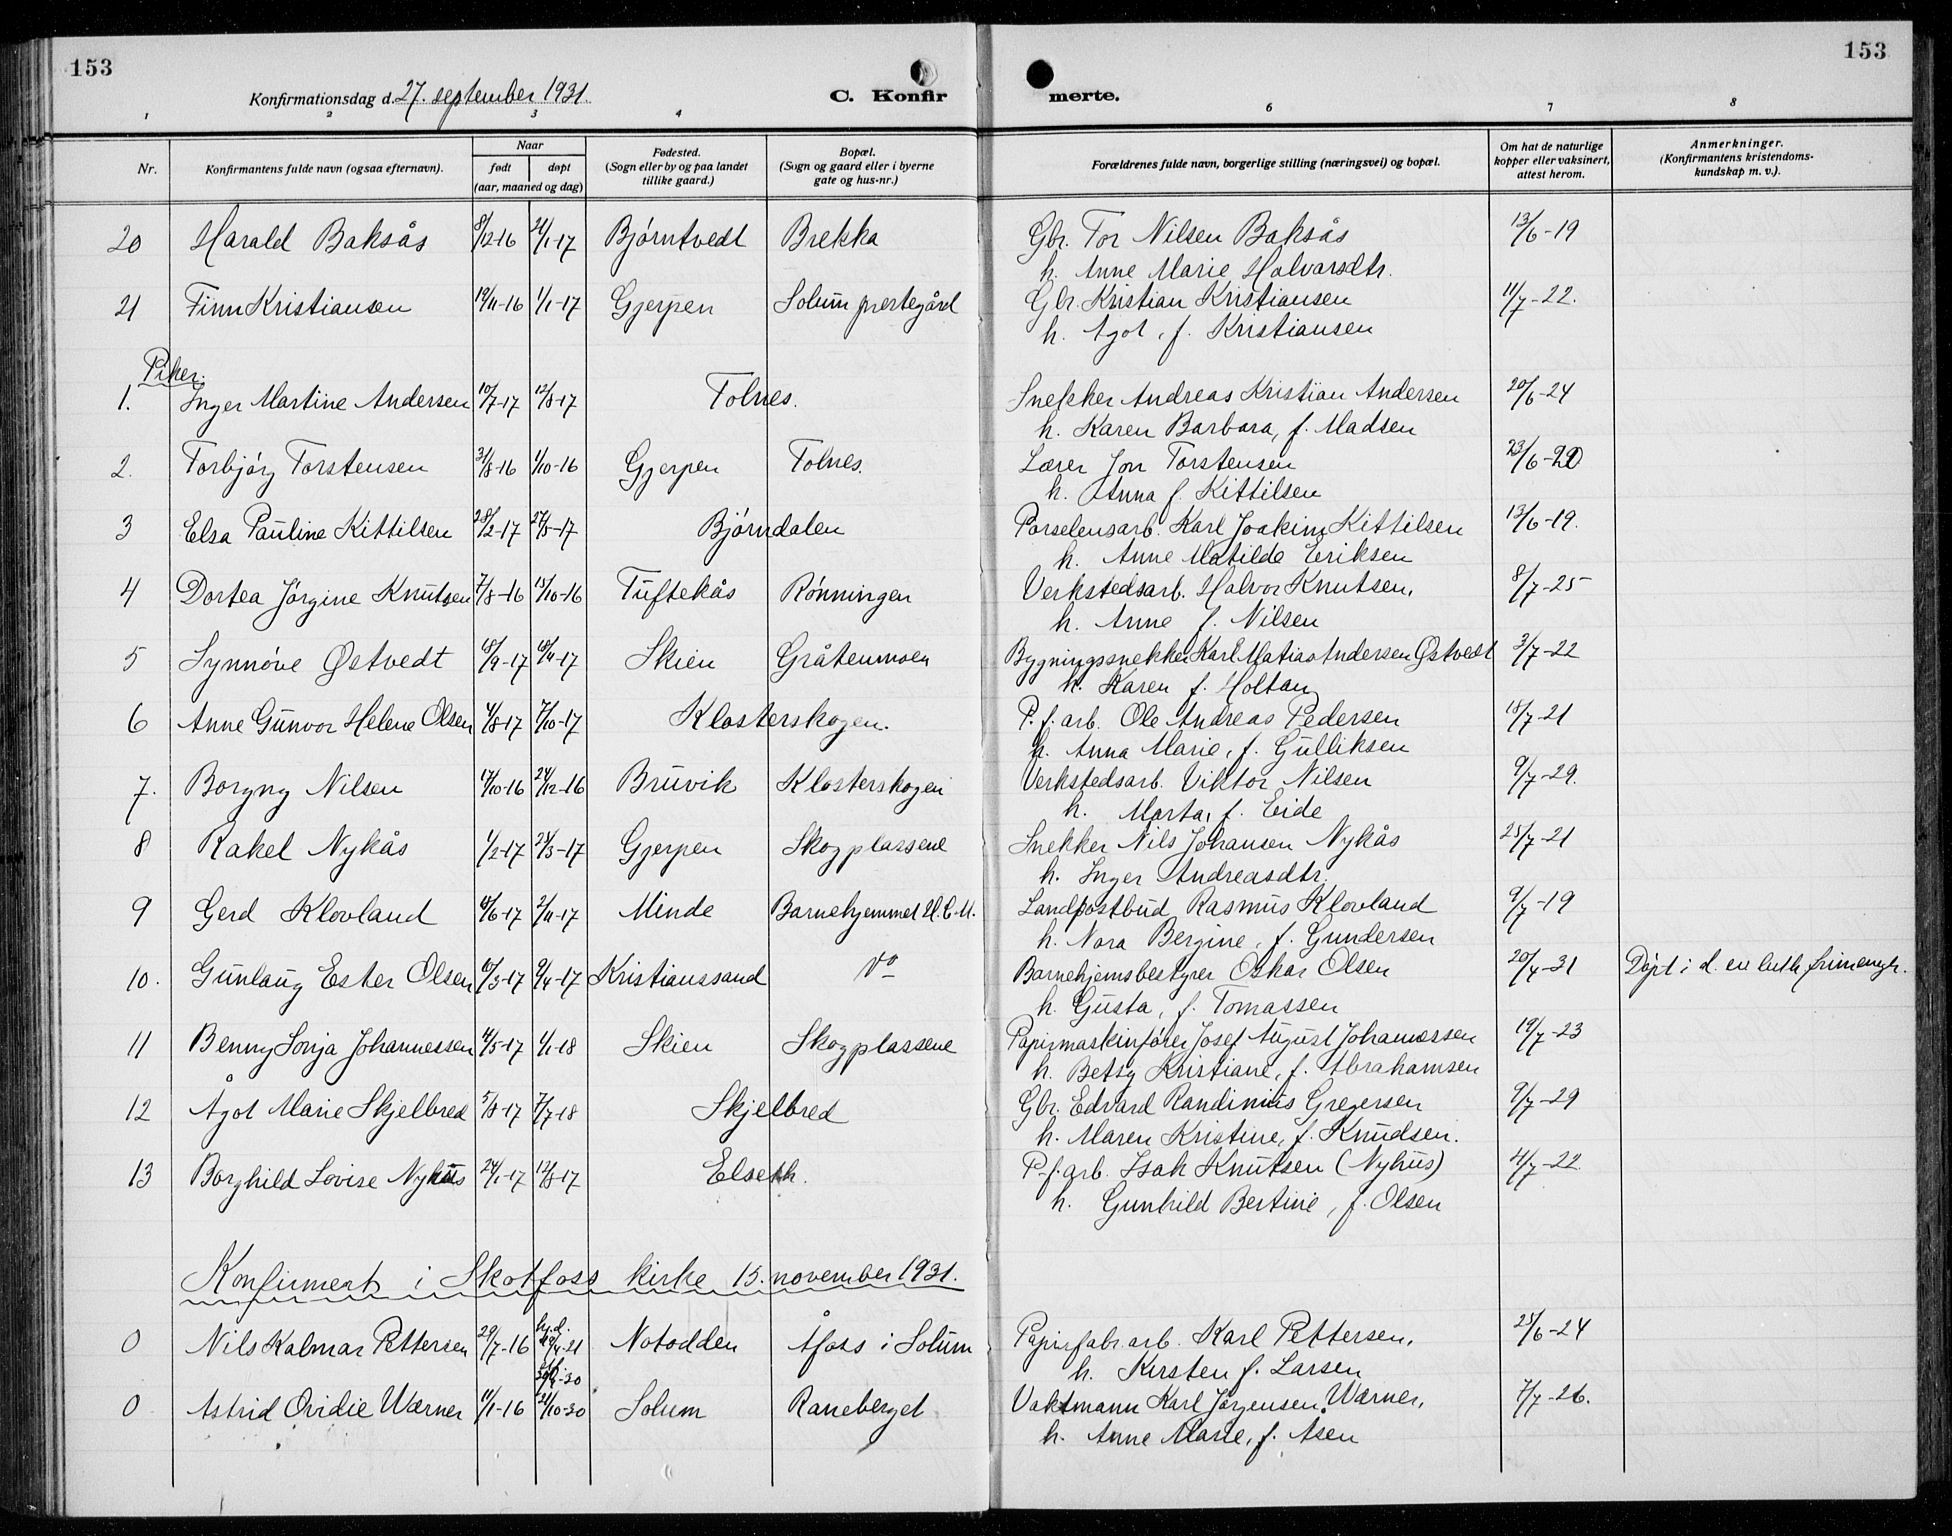 153
153
Konfirmationsdag d. 27. september 1931.
C. Konfir
merte.
1 2 3 4 6 7 8
Nr. Konfirmantens fulde navn (ogsaa efternavn). Naar født døpt (aar, maaned og dag) Fødested. (Sogn eller by og paa landet tillike gaard.) Bopæl. (Sogn og gaard eller i byerne gate og hus-nr.) Forældrenes fulde navn, borgerlige stilling (næringsvei) og bopæl. Om hat de naturlige kopper eller vaksinert, attest herom. Anmerkninger. (Konfirmantens kristendoms-kundskap m. v.).
20 Harald Baksås 8/12-16 21/1-17 Bjørntvedt Brekka Gbr. Tor Nilsen Baksås 13/6-19
h. Anne Marie Halvorsdtr.
21 Finn Kristiansen 19/11-16 1/1-17 Gjerpen Solum prestegård Gbr. Kristian Kristiansen 11/7-22.
h. Agot, f. Kristiansen
Piker.
1. Inger Martine Andersen 10/7-17 12/8-17 Tolnes. Snekker Andreas Kristian Andersen 20/6-24
h. Karen Barbara, f. Madsen
2. Torbjörg Torstensen 31/8-16 1/10-16 Gjerpen Tolnes. Lærer Jon Torstensen 23/6-20
h. Anna f. Kittilsen
3 Elsa Pauline Kittilsen 28/2-17 27/5-17 Bjørndalen Porselensarb. Karl Joakim Kittilsen 13/6-19.
h. Anne Matilde Eriksen
4 Dortea Jörgine Knutsen 7/8-16 15/10-16 Tuftekås Rønningen Verkstedsarb. Halvor Knutsen, 8/7-25
h. Anne f. Nilsen
5 Synnöve Østvedt Skien Gråtenmoen Bygningssnekker Karl Matias Andersen Østvedt 3/7-22
h. Karen f. Holtan
6 Anne Gunvor Helene Olsen 4/8-17 7/10-17 Klosterskogen. P. f. arb. Ole Andreas Pedersen 18/7-21
h. Anna Marie, f. Gulliksen
7. Borgny Nilsen 17/10-16 24/12-16 Bruvik Klosterskogen Verkstedsarb. Viktor Nilsen 9/7-29.
h. Marta, f. Eide
8 Rakel Nykås 1/2-17 25/3-17 Gjerpen Skogplassene Snekker Nils Johansen Nykås 25/7-21
h. Inger Andreasdtr.
9 Gerd Klovland 10/6-17 2/11-17 Minde Barnehjemmet U. C. M. Landpostbud Rasmus Klovland 9/7-19
h. Nora Bergine, f. Gundersen
10. Gunlaug Ester Olsen 10/3-17 9/4-17 Kristianssand Do Barnehjemsbestyrer Oskar Olsen 20/4-31 Döpt i d. ev. luth. frimenigh.
h. Gusta, f. Tomassen
11 Benny Sonja Johannessen 11/5-17 1/1-18 Skien Skogplassene Papirmaskinförer Josef August Johannessen 19/7-23
h. Betsy Kristiane, f. Abrahamsen
12 Ågot Marie Skjelbred 5/8-17 7/7-18 Skjelbred Gbr. Edvard Randinius Gregersen 9/7-29
h. Maren Kristine, f. Knudsen.
13 Borghild Lovise Nyhus 24/1-17 12/8-17 P. f. arb. Isak Knutsen (Nyhus) 4/7-22
h. Gunhild Bertine, f. Olsen
Konfirmert i Skotfoss kirke 15. november 1931.
0 Nils Kalmar Pettersen 29/7-16 hj. d. Notodden Åfoss i Solum Papirfabr.arb. Karl Pettersen, 25/6-24
h. Kirsten f. Larsen
0 Astrid Ovidie Wærner 11/1-16 21/10-30 Solum Raneberget Vaktmann Karl Jörgensen Wærner, 7/7-26.
h. Anne Marie, f. Åsen